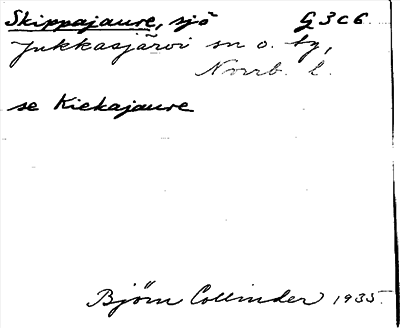 Skippajaure, sjö G3c6.
Jukkasjärvi sn o. tg,
Norrb. l.
se Kiekajaure
Björn Collinder 1935.